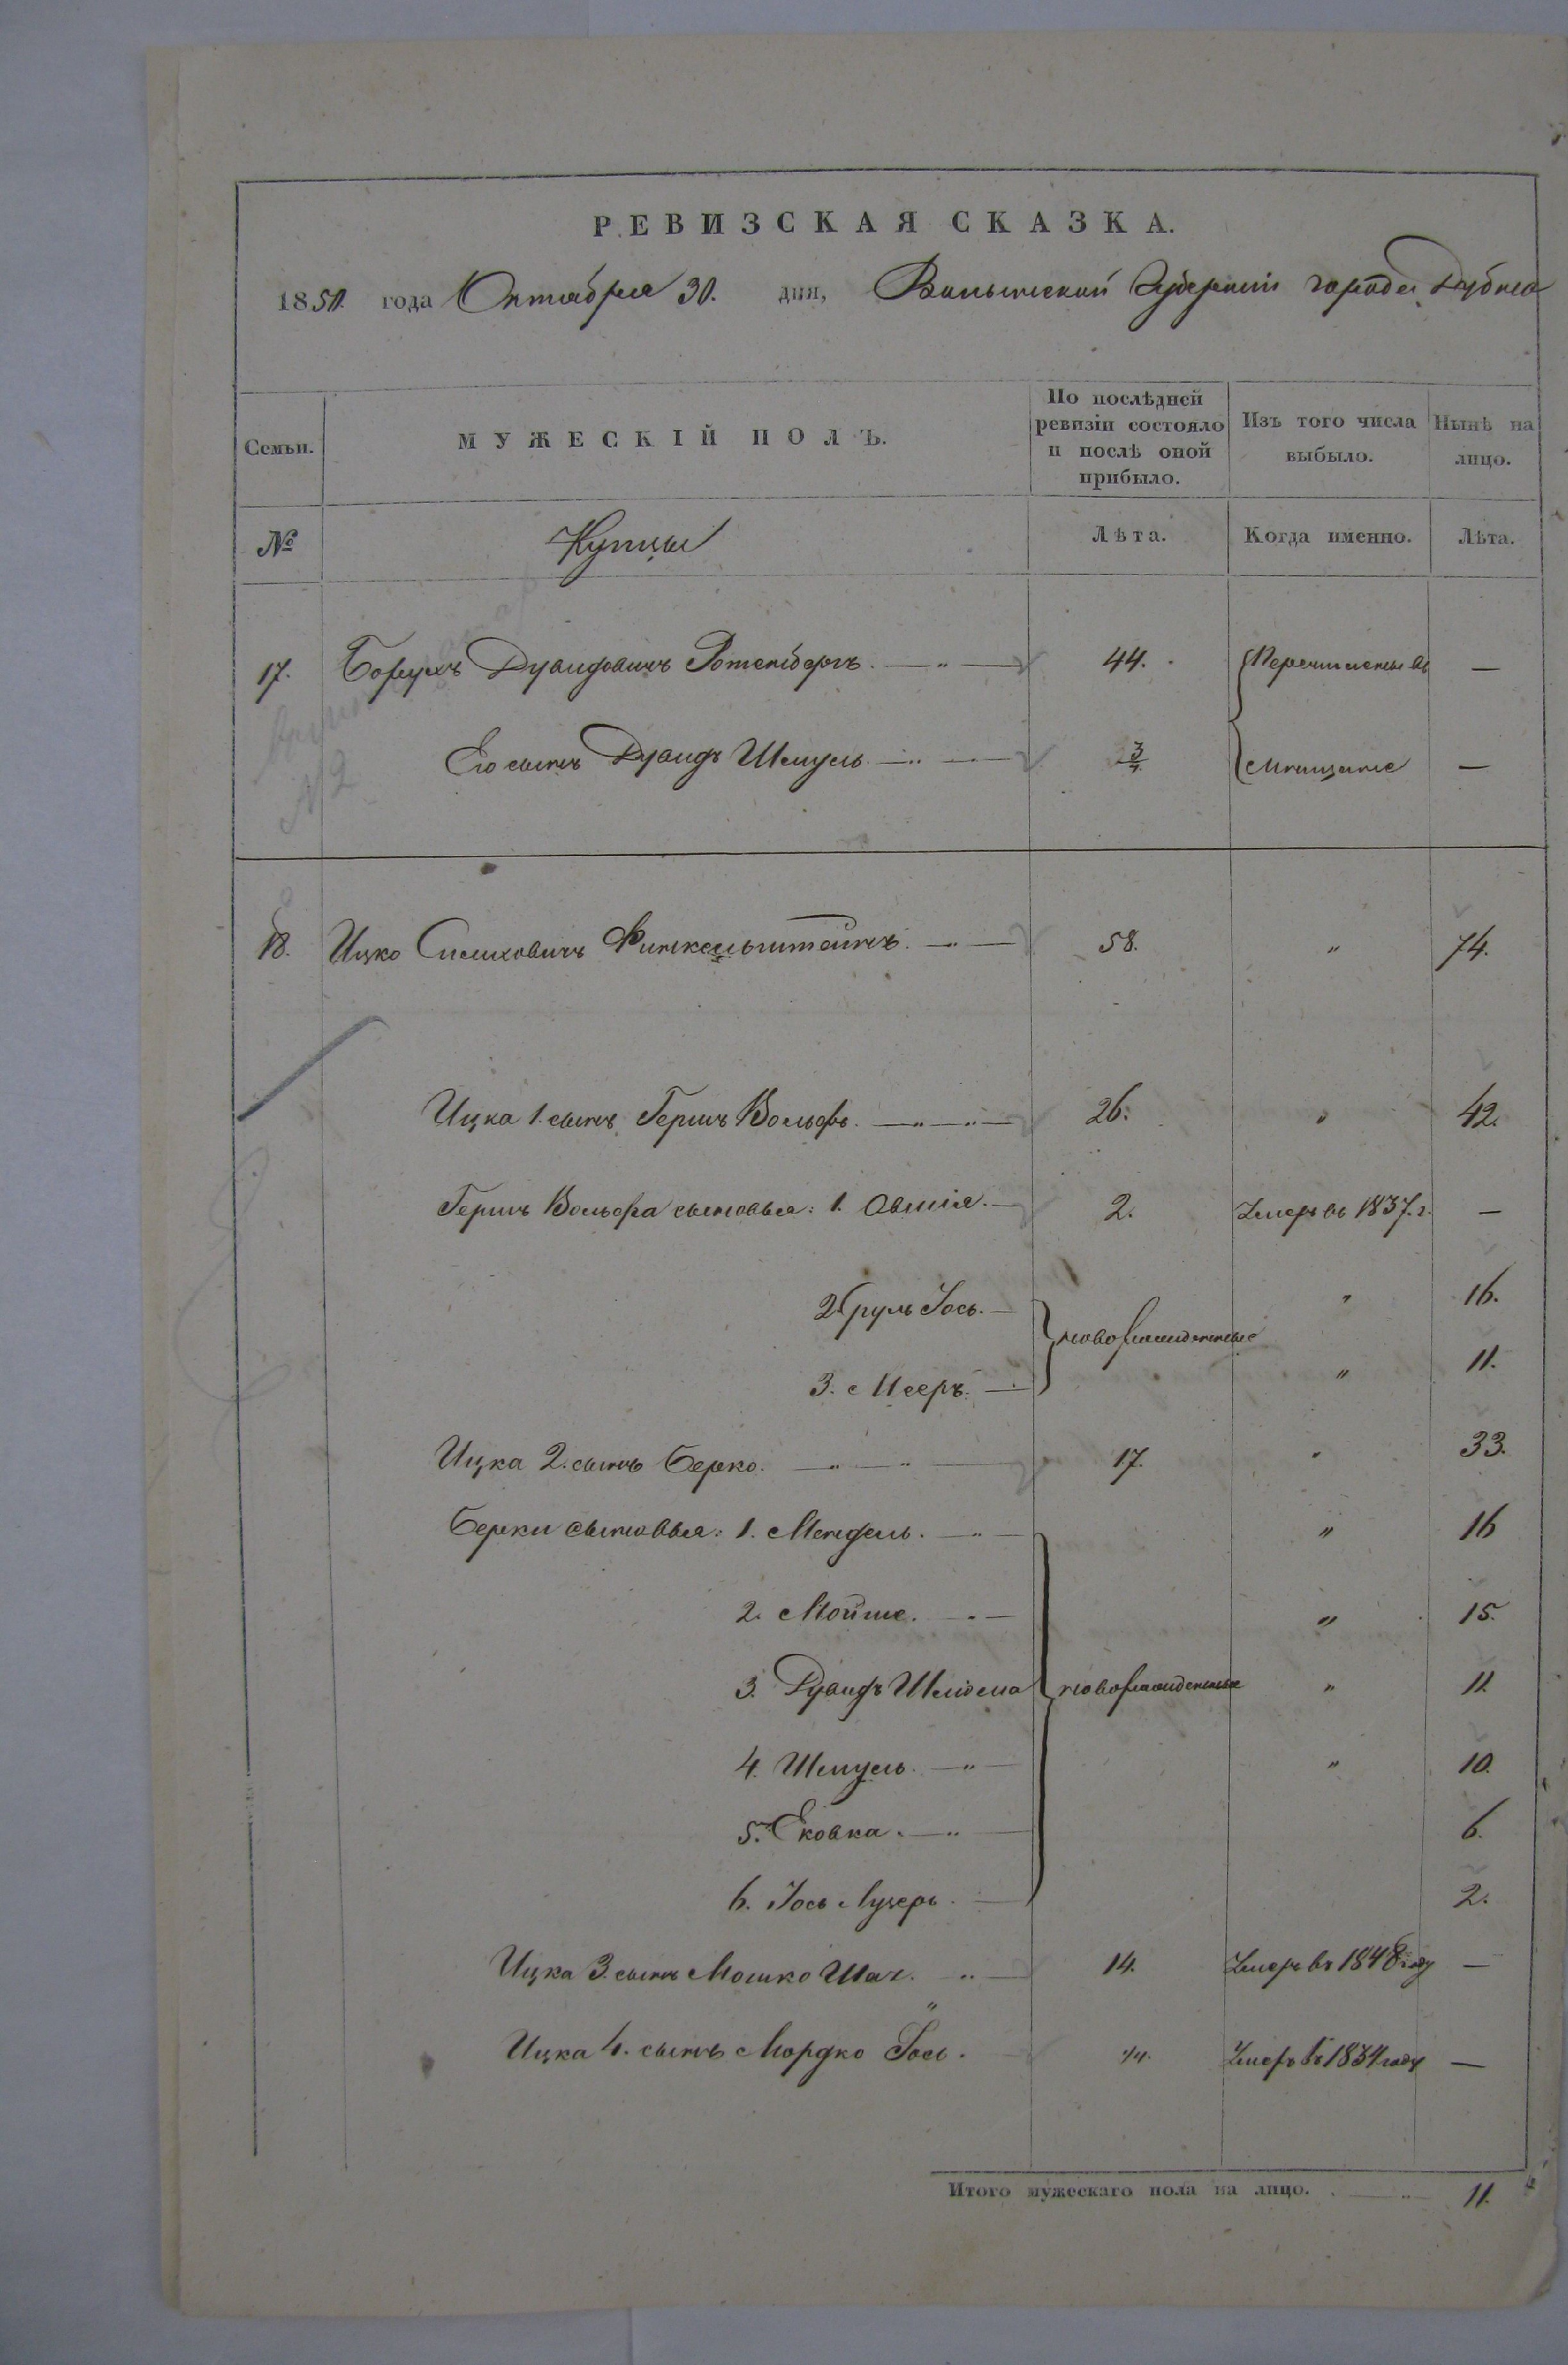 РЕВИЗСКАЯ СКАЗКА.
1850. года Октября 30. дня, Волынской Губерніи города Дубна
Семьи. МУЖЕСКІЙ ПОЛЪ. По послѣдней ревизіи состояло и послѣ оной прибыло. Изъ того числа выбыло. Нынѣ на лицо.
№ Купцы Лѣта. Когда именно. Лѣта.
17. Борухъ Дувидовичъ Ротенбергъ. 44. Перечислены въ —
Его сынъ Дувидъ Шмуль 3/4 мѣщане —
№ 2
18. Ицко Симховичъ Финкельштейнъ. 58. " 74.
Ицка 1. сынъ Гершъ Вольфъ. 26. " 42.
Гершъ Вольфа сыновья: 1. Овшія. 2. Умеръ въ 1837. г. —
2. Сруль Іось. новорожденные " 16.
3. Мееръ. " 11.
Ицка 2. сынъ Берко. 17. " 33.
Берки сыновья: 1. Мендель. " 16
2. Мойше. " 15.
3. Дувидъ Шлиома новорожденные " 11.
4. Шмуль. " 10.
5. Ековка. 6.
6. Іось Лузеръ. 2.
Ицка 3. сынъ Мошко Шах. 14. Умеръ въ 1848 году —
Ицка 4. сынъ Мордко Іось. Умеръ въ 1834 году —
Итого мужескаго пола на лицо. 11.